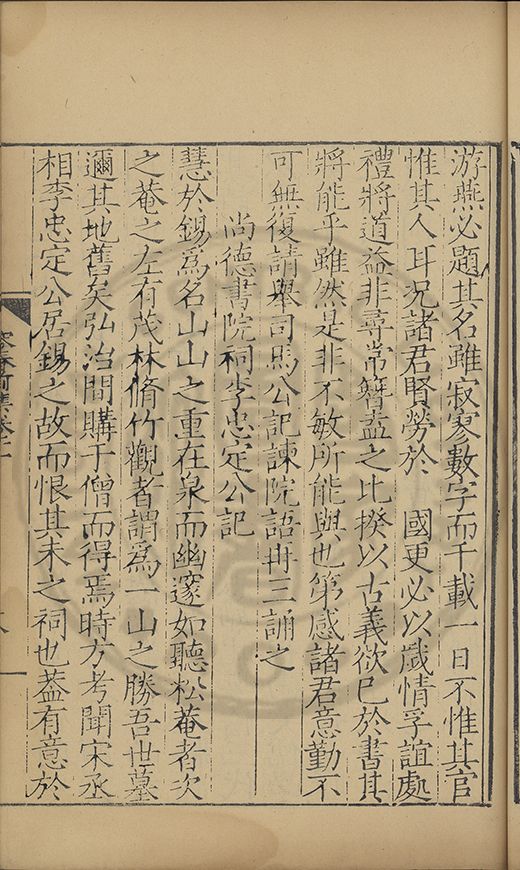 游燕必題其名雖寂寥數字而千載一日不惟其官
惟其人耳况諸君賢勞於　國更必以歲情孚誼處
禮將道益非尋常簪盍之比揆以古義欲巳於書其
將能乎雖然是非不敏所能與也第感諸君意勤不
可無復請舉司馬公記諫院語冊三誦之
尚德書院祠李忠定公記
慧於錫爲名山山之重在泉而幽邃如聽松菴者次
之菴之左有茂林脩竹觀者謂爲一山之勝吾世墓
邇其地舊矣弘治間購于僧而得焉時方考聞宋丞
相李忠定公居錫之故而恨其未之祠也葢有意於